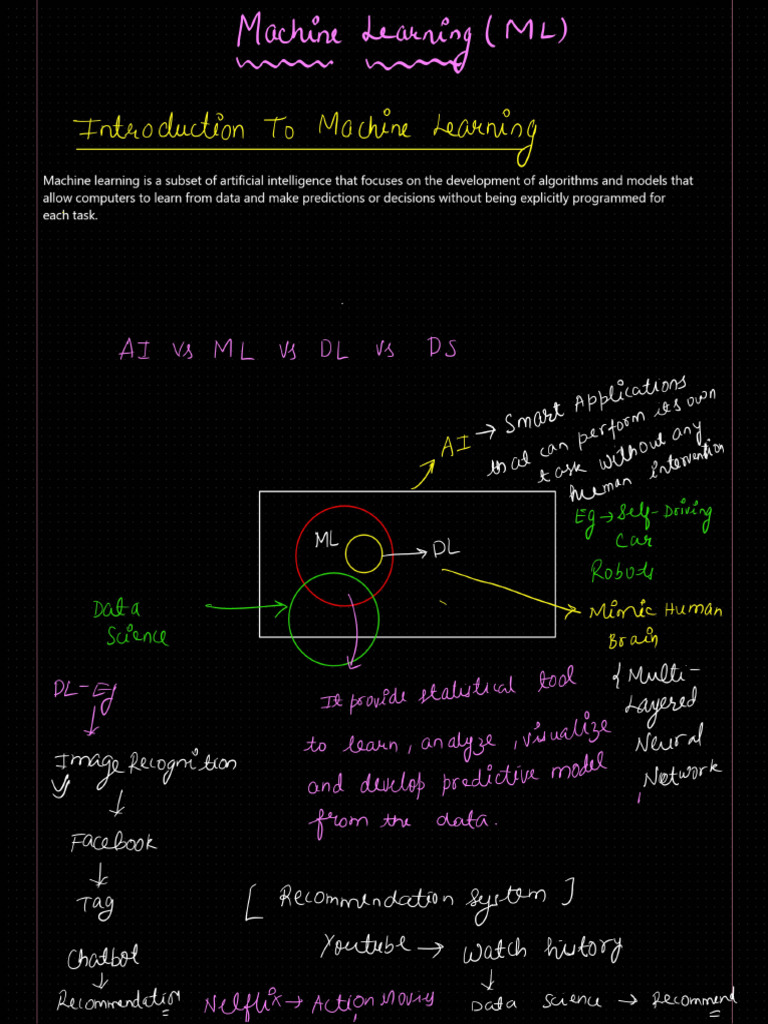 Machine Learning (ML)
Introduction To Machine Learning
Machine learning is a subset of artificial intelligence that focuses on the development of algorithms and models that
allow computers to learn from data and make predictions or decisions without being explicitly programmed for
each task.
AI vs ML vs DL vs DS
AI → Smart Applications
that can perform its own
task without any
human intervention
Eg → Self-Driving
Car
Robots
ML
→ DL
Mimic Human
Brain
{ Multi-
Layered
Neural
Network
Data
Science
It provide statistical tool
to learn, analyze, visualize
and develop predictive model
from the data.
DL - Eg
↓
Image Recognition
↓
Facebook
↓
Tag
Chatbot
↓
Recommendation
[ Recommendation System ]
Youtube → Watch history
↓
Netflix → Action Movies
Data Science → Recommend